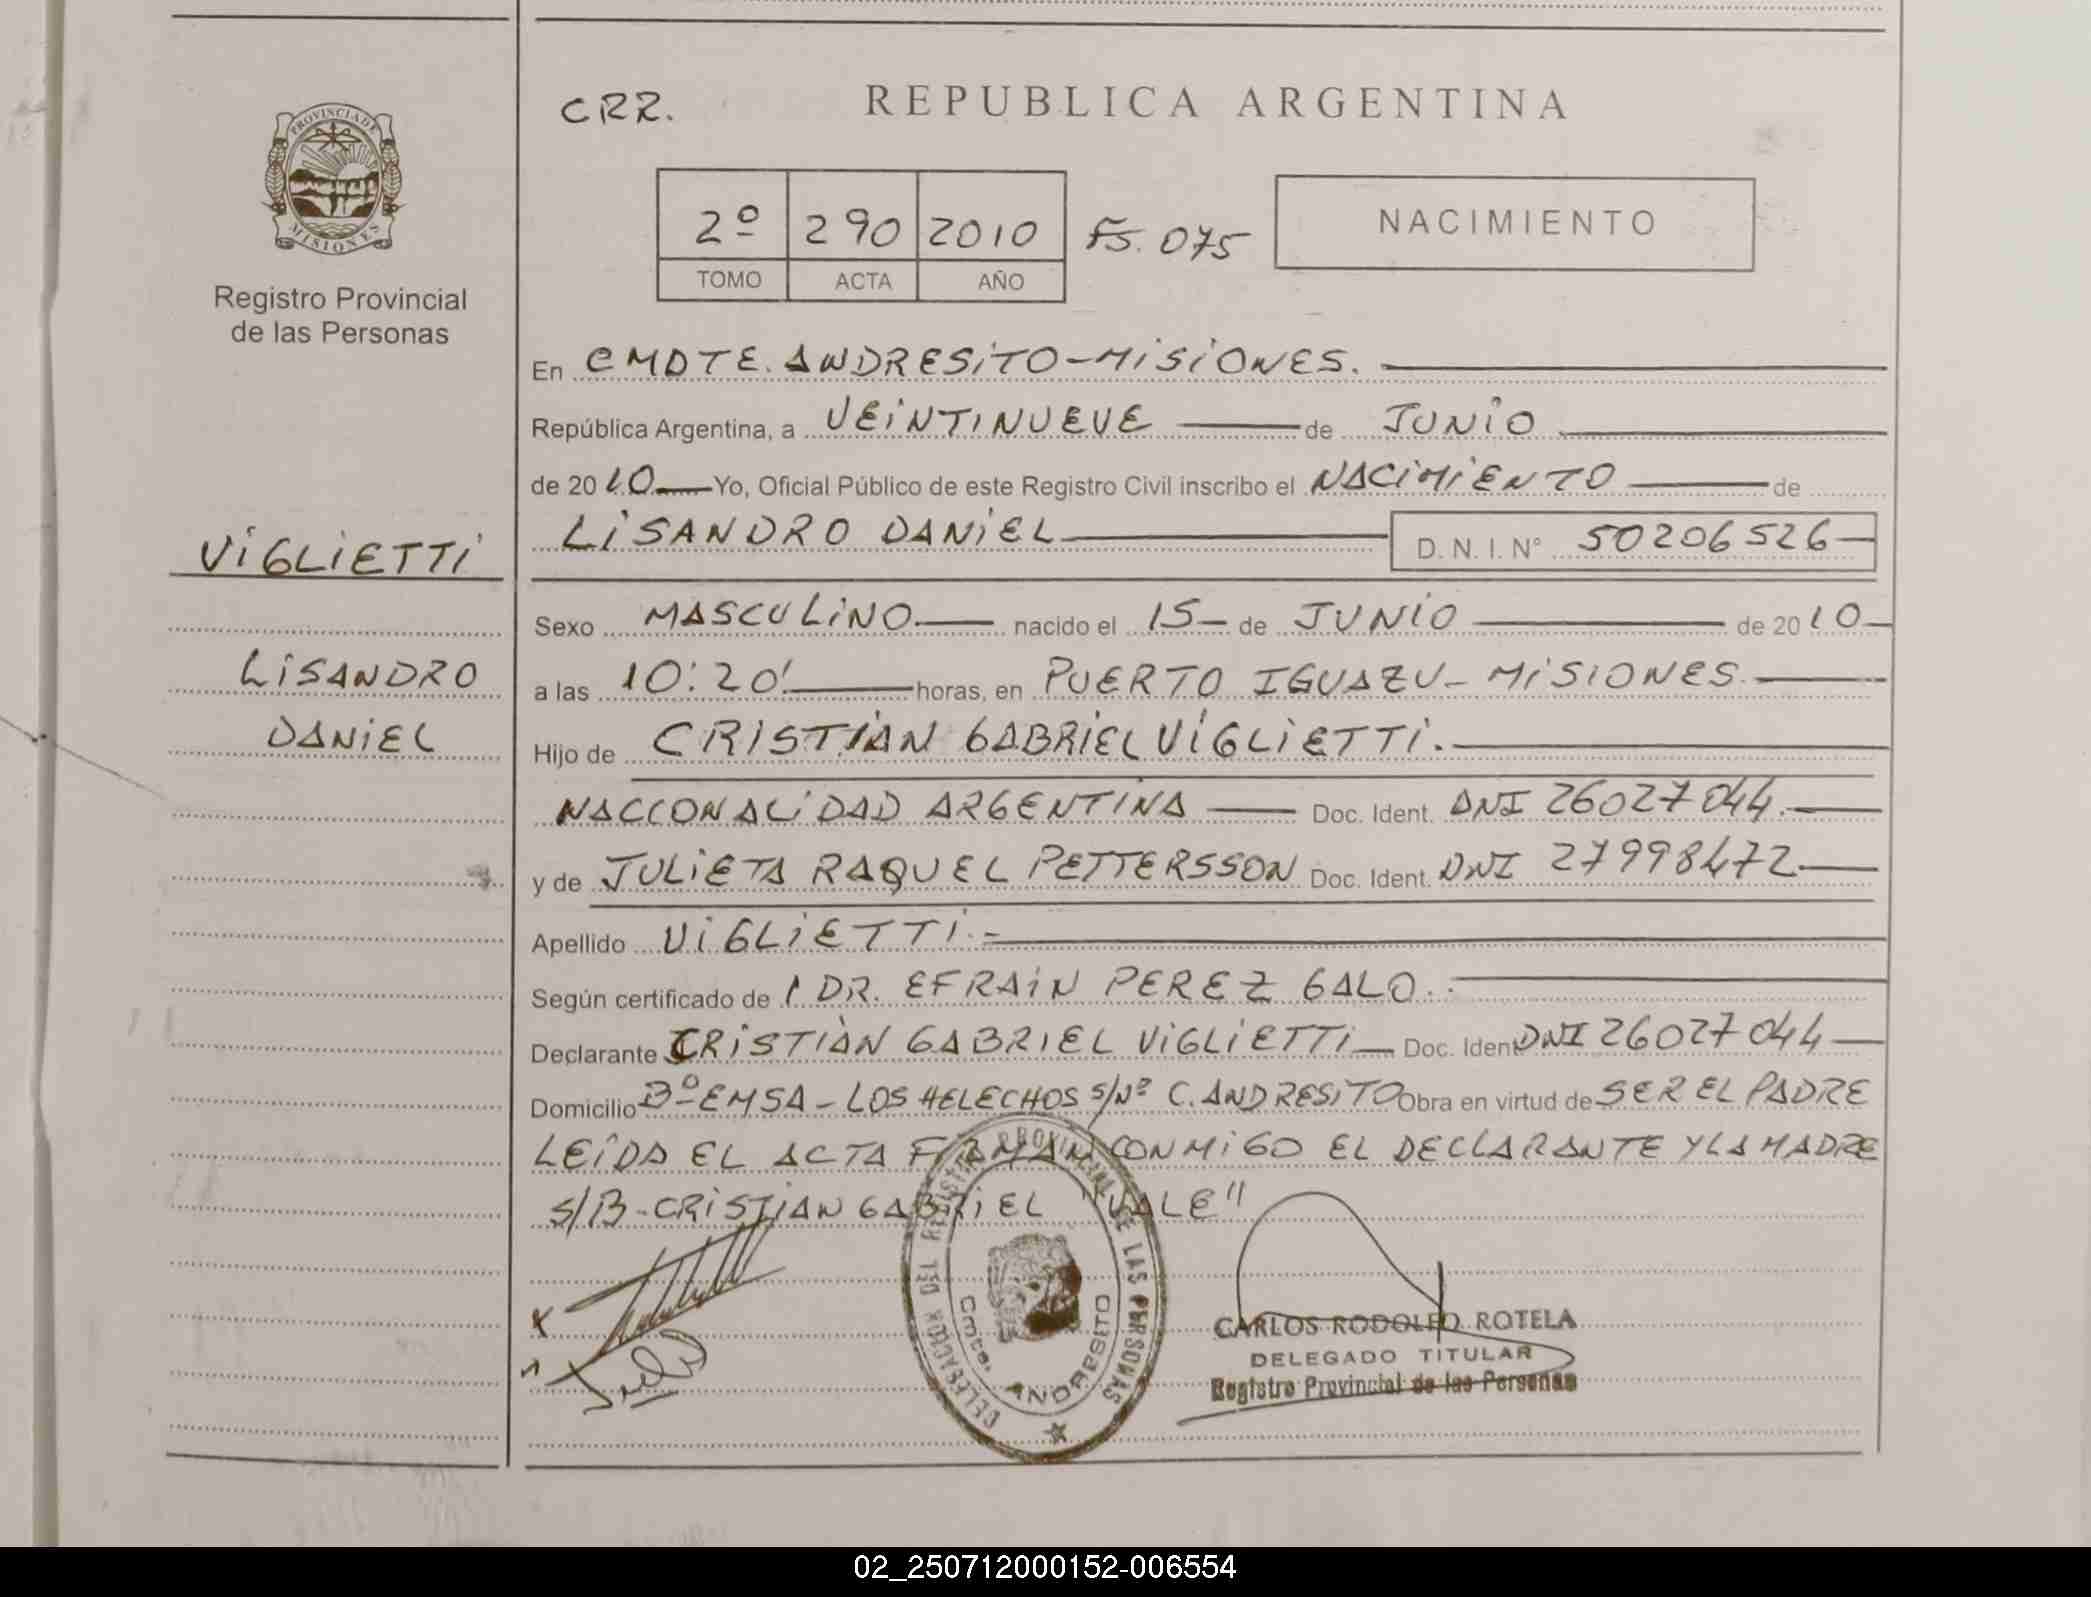 PROVINCIA DE
MISIONES
Registro Provincial
de las Personas
VIGLIETTI
LISANDRO
DANIEL
CRR. REPUBLICA ARGENTINA
2º 290 2010 FS. 075 NACIMIENTO
TOMO ACTA AÑO
En CMDTE. ANDRESITO-MISIONES.
República Argentina, a VEINTINUEVE de JUNIO
de 2010 Yo, Oficial Público de este Registro Civil inscribo el NACIMIENTO de
LISANDRO DANIEL D. N. I. Nº 50206526
Sexo MASCULINO nacido el 15 de JUNIO de 2010
a las 10:20' horas, en PUERTO IGUAZU - MISIONES.
Hijo de CRISTIAN GABRIEL VIGLIETTI.
NACCONALIDAD ARGENTINA Doc. Ident. DNI 26027044.
y de JULIETA RAQUEL PETTERSSON Doc. Ident. DNI 27998472
Apellido VIGLIETTI.-
Según certificado de DR. EFRAIN PEREZ GALO.
Declarante CRISTIAN GABRIEL VIGLIETTI Doc. Ident DNI 26027044
Domicilio Bº EMSA - LOS HELECHOS S/Nº C. ANDRESITO Obra en virtud de SER EL PADRE
LEIDA EL ACTA FIRMAN CONMIGO EL DECLARANTE Y LA MADRE
S/B - CRISTIAN GABRIEL "VALE"
DELEGACION DEL REGISTRO PROVINCIAL DE LAS PERSONAS
Cmte. ANDRESITO
CARLOS RODOLFO ROTELA
DELEGADO TITULAR
Registro Provincial de las Personas
02_250712000152-006554